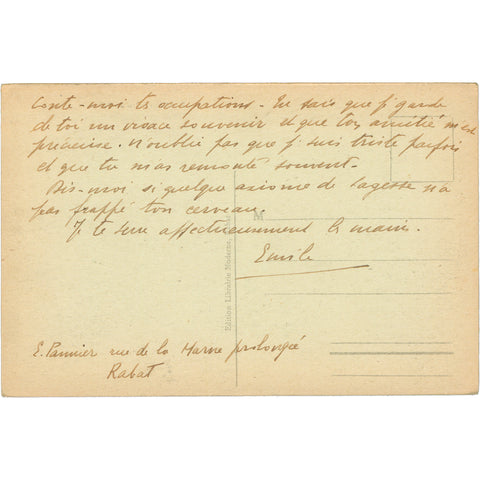 Conte-moi tes occupations. Tu sais que j'garde
de toi un vivace souvenir et que ton amitié m'est
précieuse. N'oublie pas que j'suis triste parfois
et que tu m'as remonté souvent.
Dis-moi si quelque axiome de sagesse n'a
pas frappé ton cerveau.
Je te serre affectueusement la main.
Emile
M
Edition Librairie Moderne,
E. Pannier rue de la Marne prolongée
Rabat